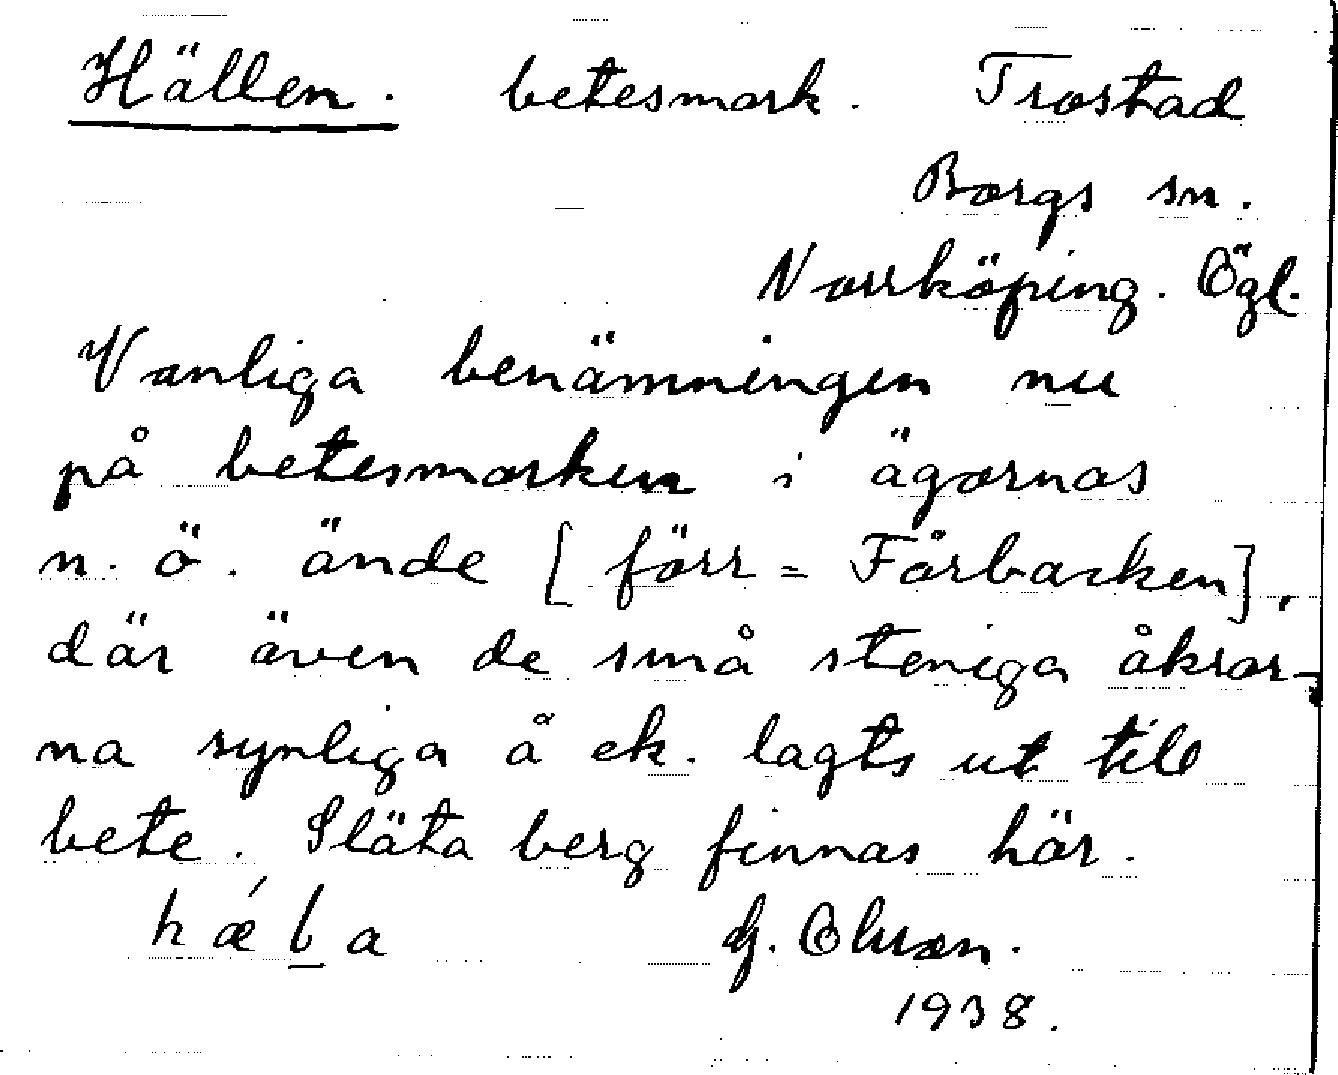 Hällen. betesmark. Trostad
Borgs sn.
Norrköping. Ögl.
Vanliga benämningen nu
på betesmarken i ägornas
n. ö. ände [förr = Fårbacken],
där även de små steniga åkrar-
na synliga å ek. lagts ut till
bete. Släta berg finnas här.
hǽḷa G. Olsson.
1938.